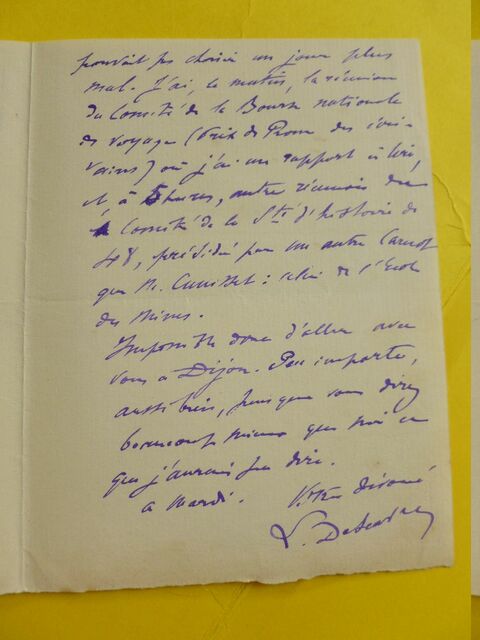 pouvait pas choisir un jour plus
mal. J'ai, le matin, la réunion
du Comité de la Bourse nationale
de voyage (Prix de Rome des écri-
vains) où j'ai un rapport à lire,
et, à 5 heures, autre réunion du
Comité de la Sté d'histoire de
48, présidé par un autre Carnot
que M. Cunisset : celui de l'École
des Mines.
Impossible donc d'aller avec
vous à Dijon. Peu importe,
aussi bien, puisque vous direz
beaucoup mieux que moi ce
que j'aurais pu dire.
à mardi. Votre dévoué